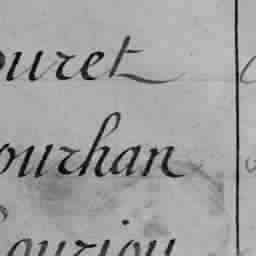 ouret
ourhan
ouriou